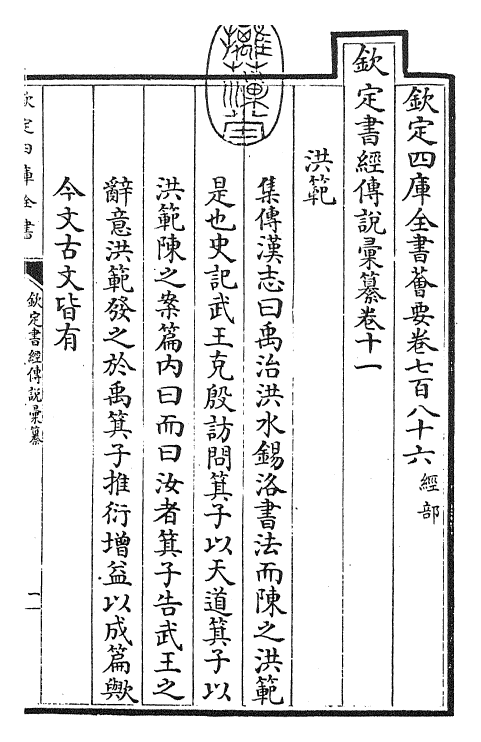 欽定四庫全書薈要卷七百八十六 經部
欽定書經傳說彙纂卷十一
洪範
集傳漢志曰禹治洪水錫洛書法而陳之洪範
是也史記武王克殷訪問箕子以天道箕子以
洪範陳之案篇內曰而曰汝者箕子告武王之
辭意洪範發之於禹箕子推衍增益以成篇歟
今文古文皆有
欽定四庫全書
欽定書經傳說彙纂
一